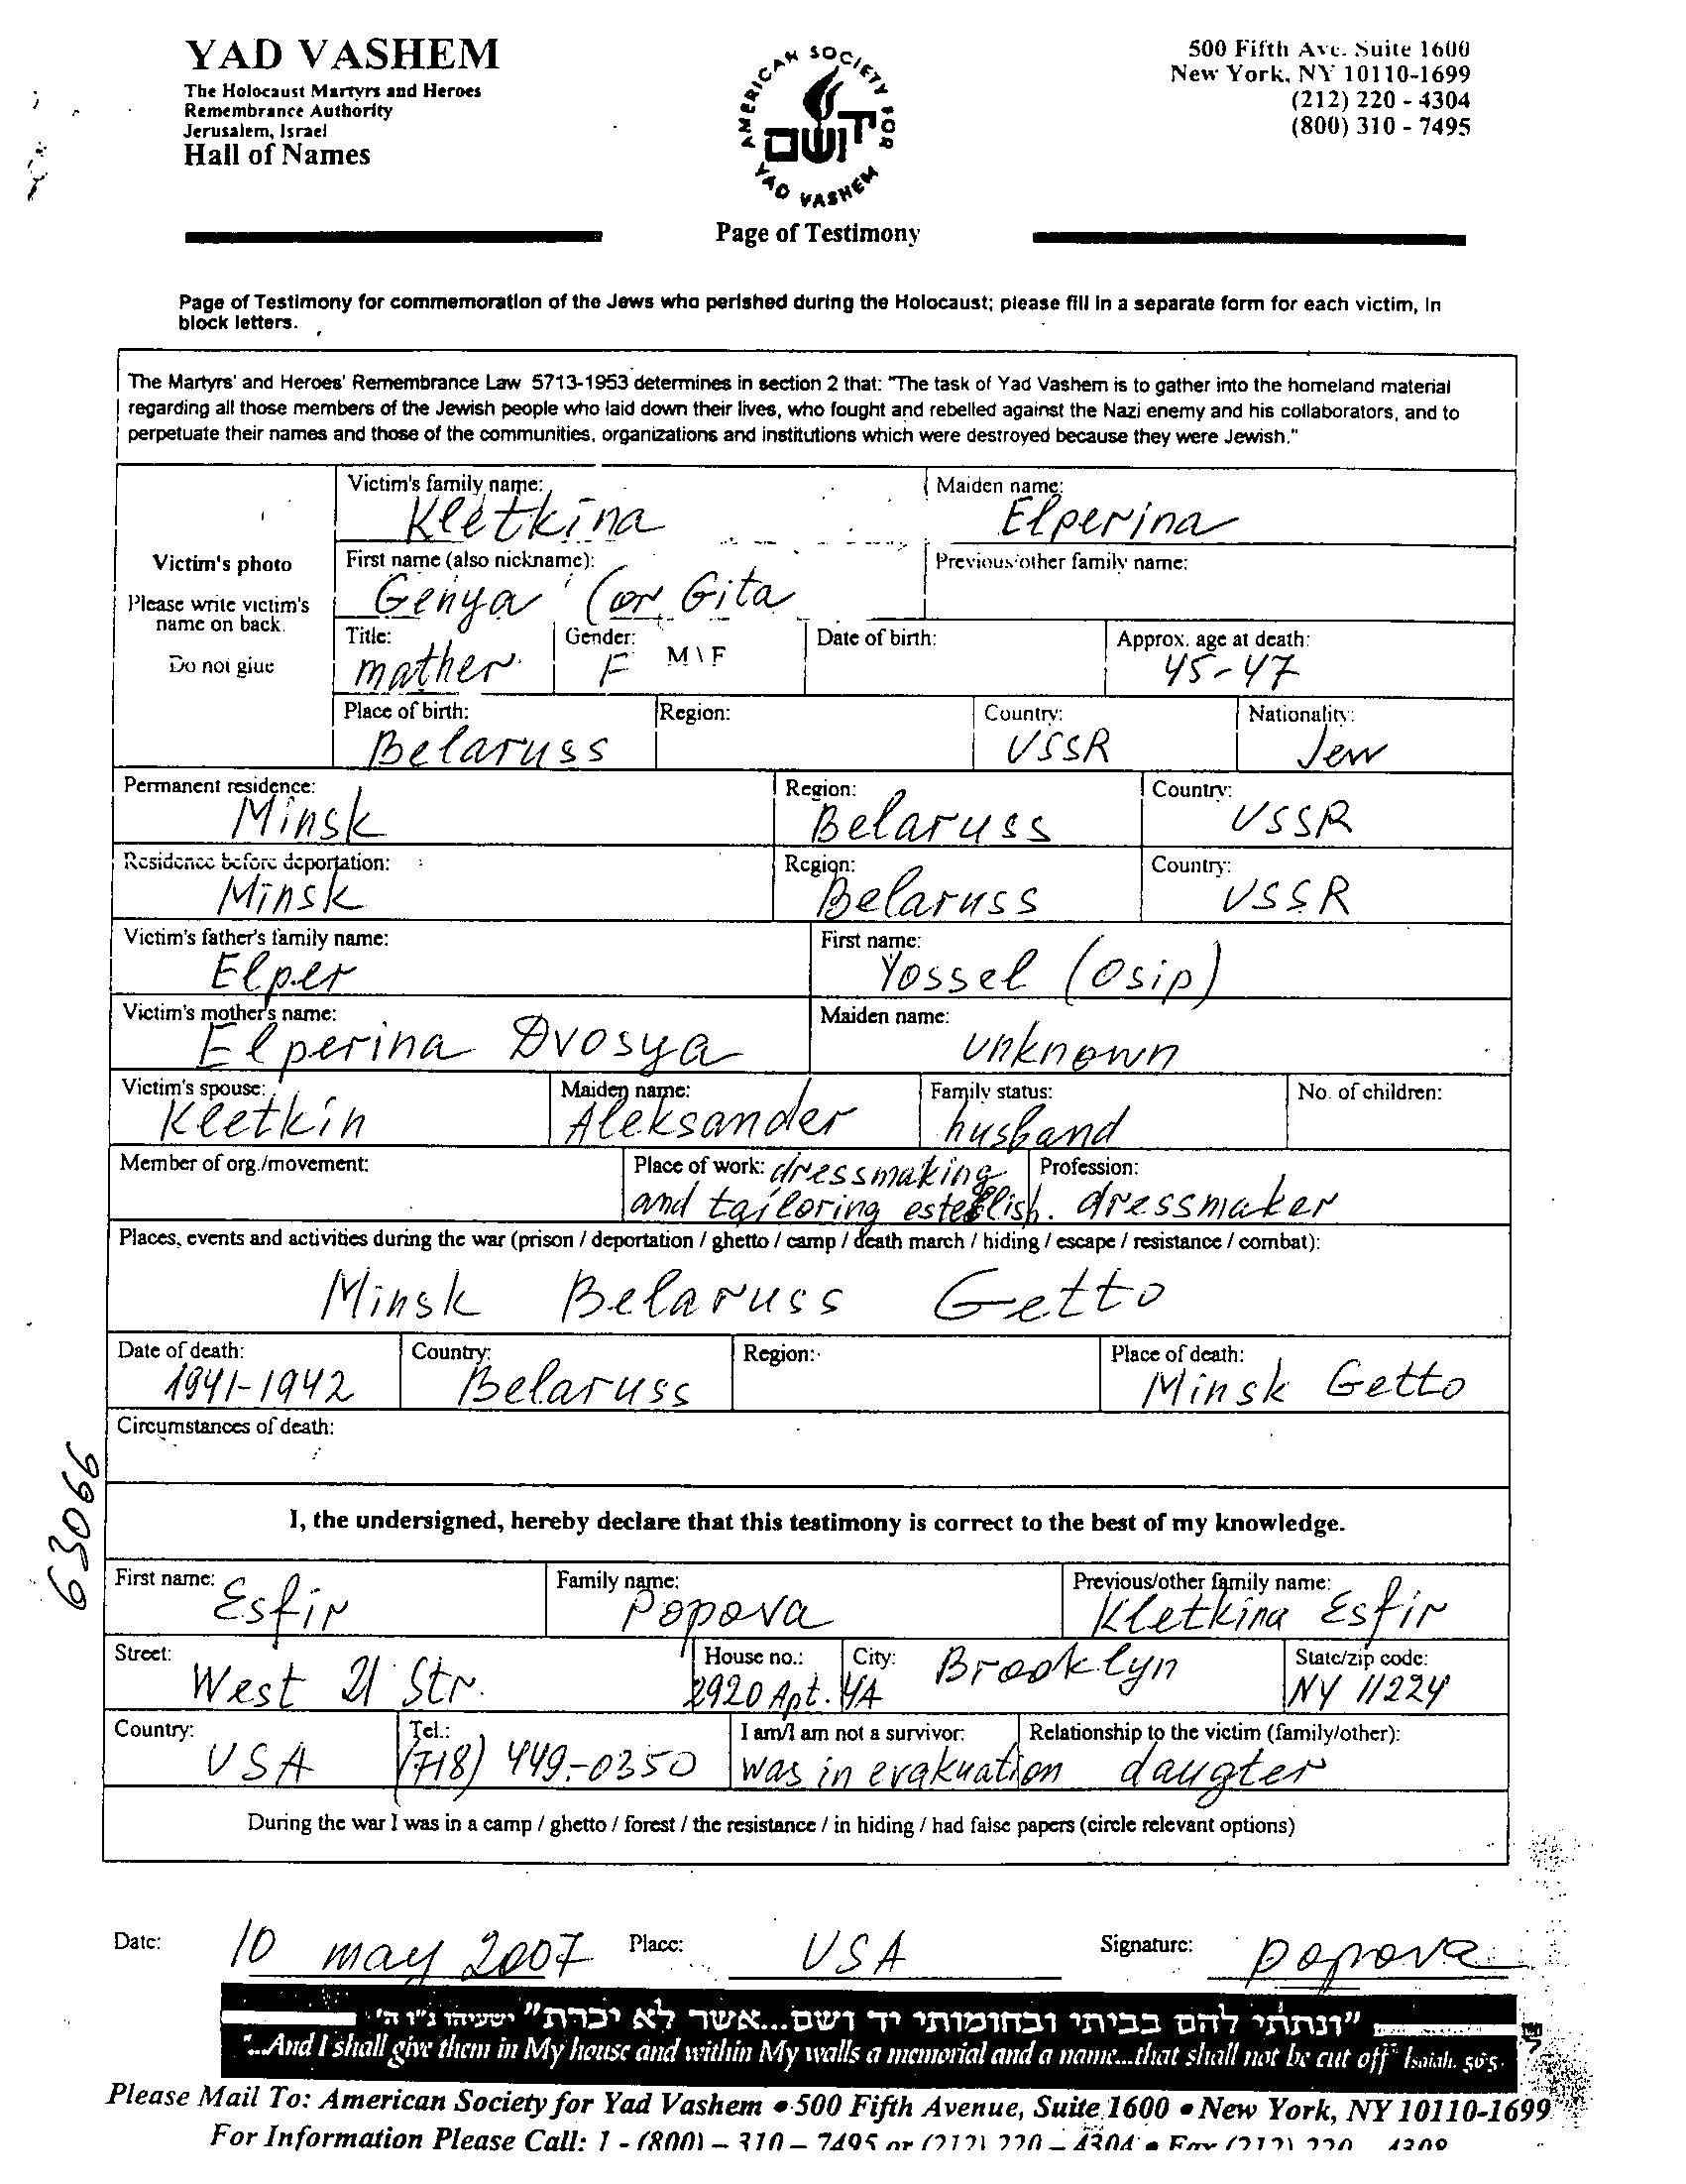 YAD VASHEM
The Holocaust Martyrs and Heroes
Remembrance Authority
Jerusalem, Israel
Hall of Names
AMERICAN SOCIETY FOR
יד ושם
YAD VASHEM
500 Fifth Ave. Suite 1600
New York, NY 10110-1699
(212) 220 - 4304
(800) 310 - 7495
Page of Testimony
Page of Testimony for commemoration of the Jews who perished during the Holocaust; please fill in a separate form for each victim, in
block letters.
The Martyrs' and Heroes' Remembrance Law 5713-1953 determines in section 2 that: "The task of Yad Vashem is to gather into the homeland material
regarding all those members of the Jewish people who laid down their lives, who fought and rebelled against the Nazi enemy and his collaborators, and to
perpetuate their names and those of the communities, organizations and institutions which were destroyed because they were Jewish."
Victim's photo
Please write victim's
name on back.
Do not glue
Victim's family name: Maiden name:
Kletkina Elperina
First name (also nickname): Previous/other family name:
Genya (or Gita
Title: Gender: M\F Date of birth: Approx. age at death:
mather F 45-47
Place of birth: Region: Country: Nationality:
Belaruss VSSR Jew
Permanent residence: Region: Country:
Minsk Belaruss VSSR
Residence before deportation: Region: Country:
Minsk Belaruss VSSR
Victim's father's family name: First name:
Elper Yossel (Osip)
Victim's mother's name: Maiden name:
Elperina Dvosya unknown
Victim's spouse: Maiden name: Family status: No. of children:
Kletkin Aleksander husband
Member of org./movement: Place of work: dressmaking Profession:
and tailoring esteblish. dressmaker
Places, events and activities during the war (prison / deportation / ghetto / camp / death march / hiding / escape / resistance / combat):
Minsk Belaruss Getto
Date of death: Country: Region: Place of death:
1941-1942 Belaruss Minsk Getto
Circumstances of death:
63066
I, the undersigned, hereby declare that this testimony is correct to the best of my knowledge.
First name: Family name: Previous/other family name:
Esfir Popova Kletkina Esfir
Street: House no.: City: Brooklyn State/zip code:
West 21 Str. 2920 Apt. 4A NY 11224
Country: Tel.: I am/I am not a survivor: Relationship to the victim (family/other):
USA (718) 449-0350 was in evakuation daugter
During the war I was in a camp / ghetto / forest / the resistance / in hiding / had false papers (circle relevant options)
Date: 10 may 2007 Place: USA Signature: popova
"ונתתי להם בביתי ובחומותי יד ושם...אשר לא יכרת" ישעיהו נ"ו ה'
"...And I shall give them in My house and within My walls a memorial and a name...that shall not be cut off" Isaiah. 56'5.
Please Mail To: American Society for Yad Vashem • 500 Fifth Avenue, Suite 1600 • New York, NY 10110-1699
For Information Please Call: 1 - (800) – 310 – 7495 or (212) 220 – 4304 • Fax (212) 220 4309